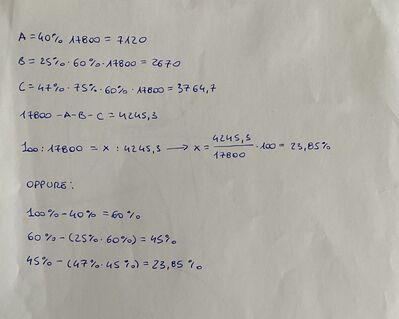 A = 40% · 17800 = 7120
B = 25% · 60% · 17800 = 2670
C = 47% · 75% · 60% · 17800 = 3764,7
17800 - A - B - C = 4245,3
100 : 17800 = x : 4245,3 → x = 4245,3 / 17800 · 100 = 23,85%
OPPURE:
100% - 40% = 60%
60% - (25% · 60%) = 45%
45% - (47% · 45%) = 23,85%